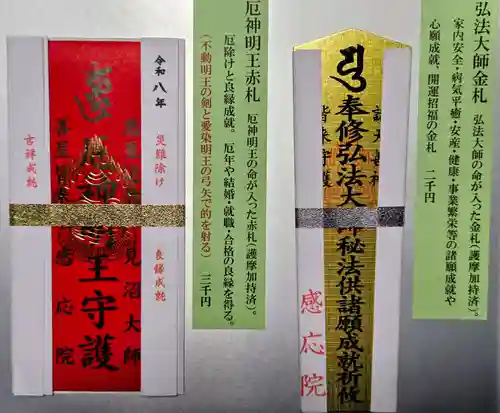 弘法大師金札 弘法大師の命が入った金札(護摩加持済)。
家内安全・病気平癒・安産・健康・事業繁栄等の諸願成就や
心願成就、開運招福の金札 二千円
奉修弘法大師秘法供諸願成就祈攸
諸天善神
皆来守護
感応院
厄神明王赤札 厄神明王の命が入った赤札(護摩加持済)。
厄除けと良縁成就。厄年や結婚・就職・合格の良縁を得る。
(不動明王の剣と愛染明王の弓矢で的を射る) 三千円
令和八年
災難除け
良縁成就
厄神明王守護
見沼大師
感応院
吉祥成就